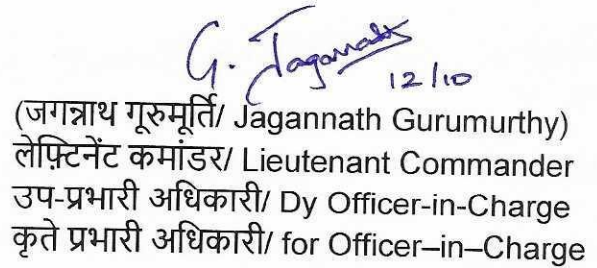 G. Jagannath
12/10
(जगन्नाथ गूरुमूर्ति/ Jagannath Gurumurthy)
लेफ़्टिनेंट कमांडर/ Lieutenant Commander
उप-प्रभारी अधिकारी/ Dy Officer-in-Charge
कृते प्रभारी अधिकारी/ for Officer–in–Charge